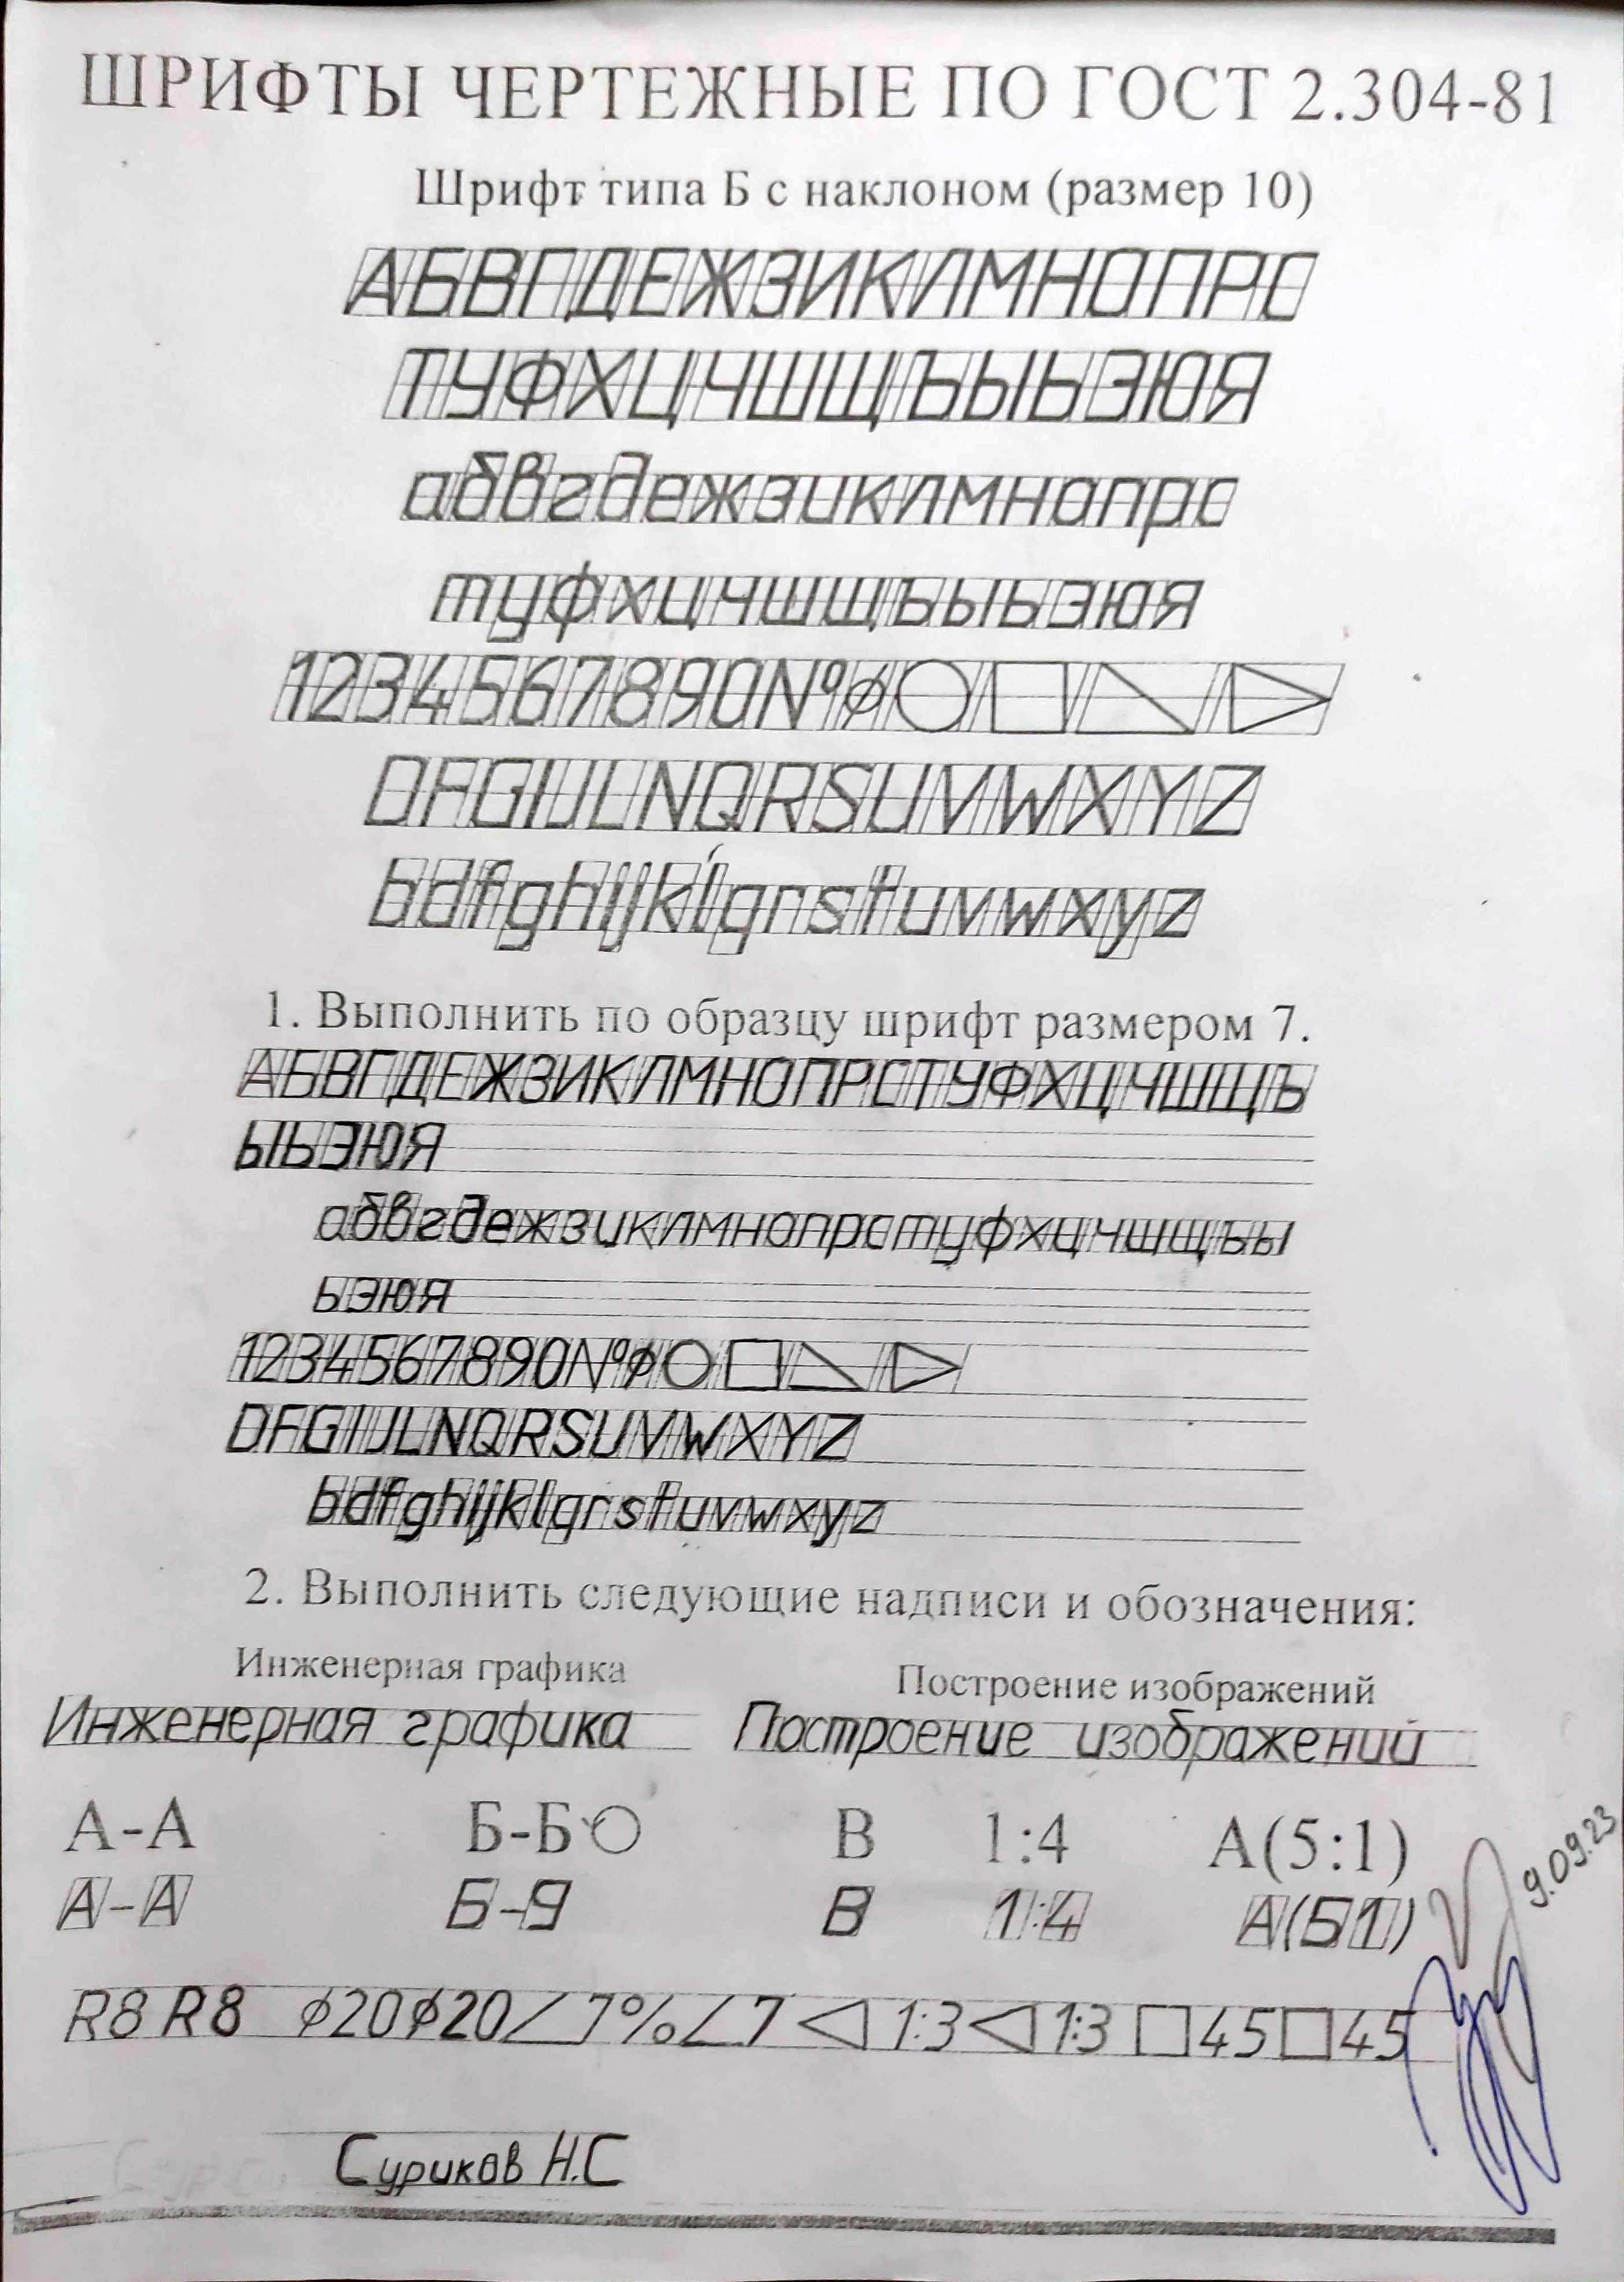 ШРИФТЫ ЧЕРТЕЖНЫЕ ПО ГОСТ 2.304-81
Шрифт типа Б с наклоном (размер 10)
АБВГДЕЖЗИКЛМНОПРС
ТУФХЦЧШЩЪЫЬЭЮЯ
абвгдежзиклмнопрс
туфхцчшщъыьэюя
1234567890№⌀○□◺▷
DFGIJLNQRSUVWXYZ
bdfghijklqrstuvwxyz
1. Выполнить по образцу шрифт размером 7.
АБВГДЕЖЗИКЛМНОПРСТУФХЦЧШЩЪ
ЫЬЭЮЯ
абвгдежзиклмнопрстуфхцчшщъы
ьэюя
1234567890№⌀○□◺▷
DFGIJLNQRSUVWXYZ
bdfghijklqrstuvwxyz
2. Выполнить следующие надписи и обозначения:
Инженерная графика Построение изображений
Инженерная графика Построение изображений
А-А Б-Б○ В 1:4 А(5:1)
А-А Б-9 В 1:4 А(51)
9.09.23
R8 R8 ⌀20 ⌀20 ∠7% ∠7 ◁ 1:3 ◁ 1:3 □45 □45
Суриков Н.С